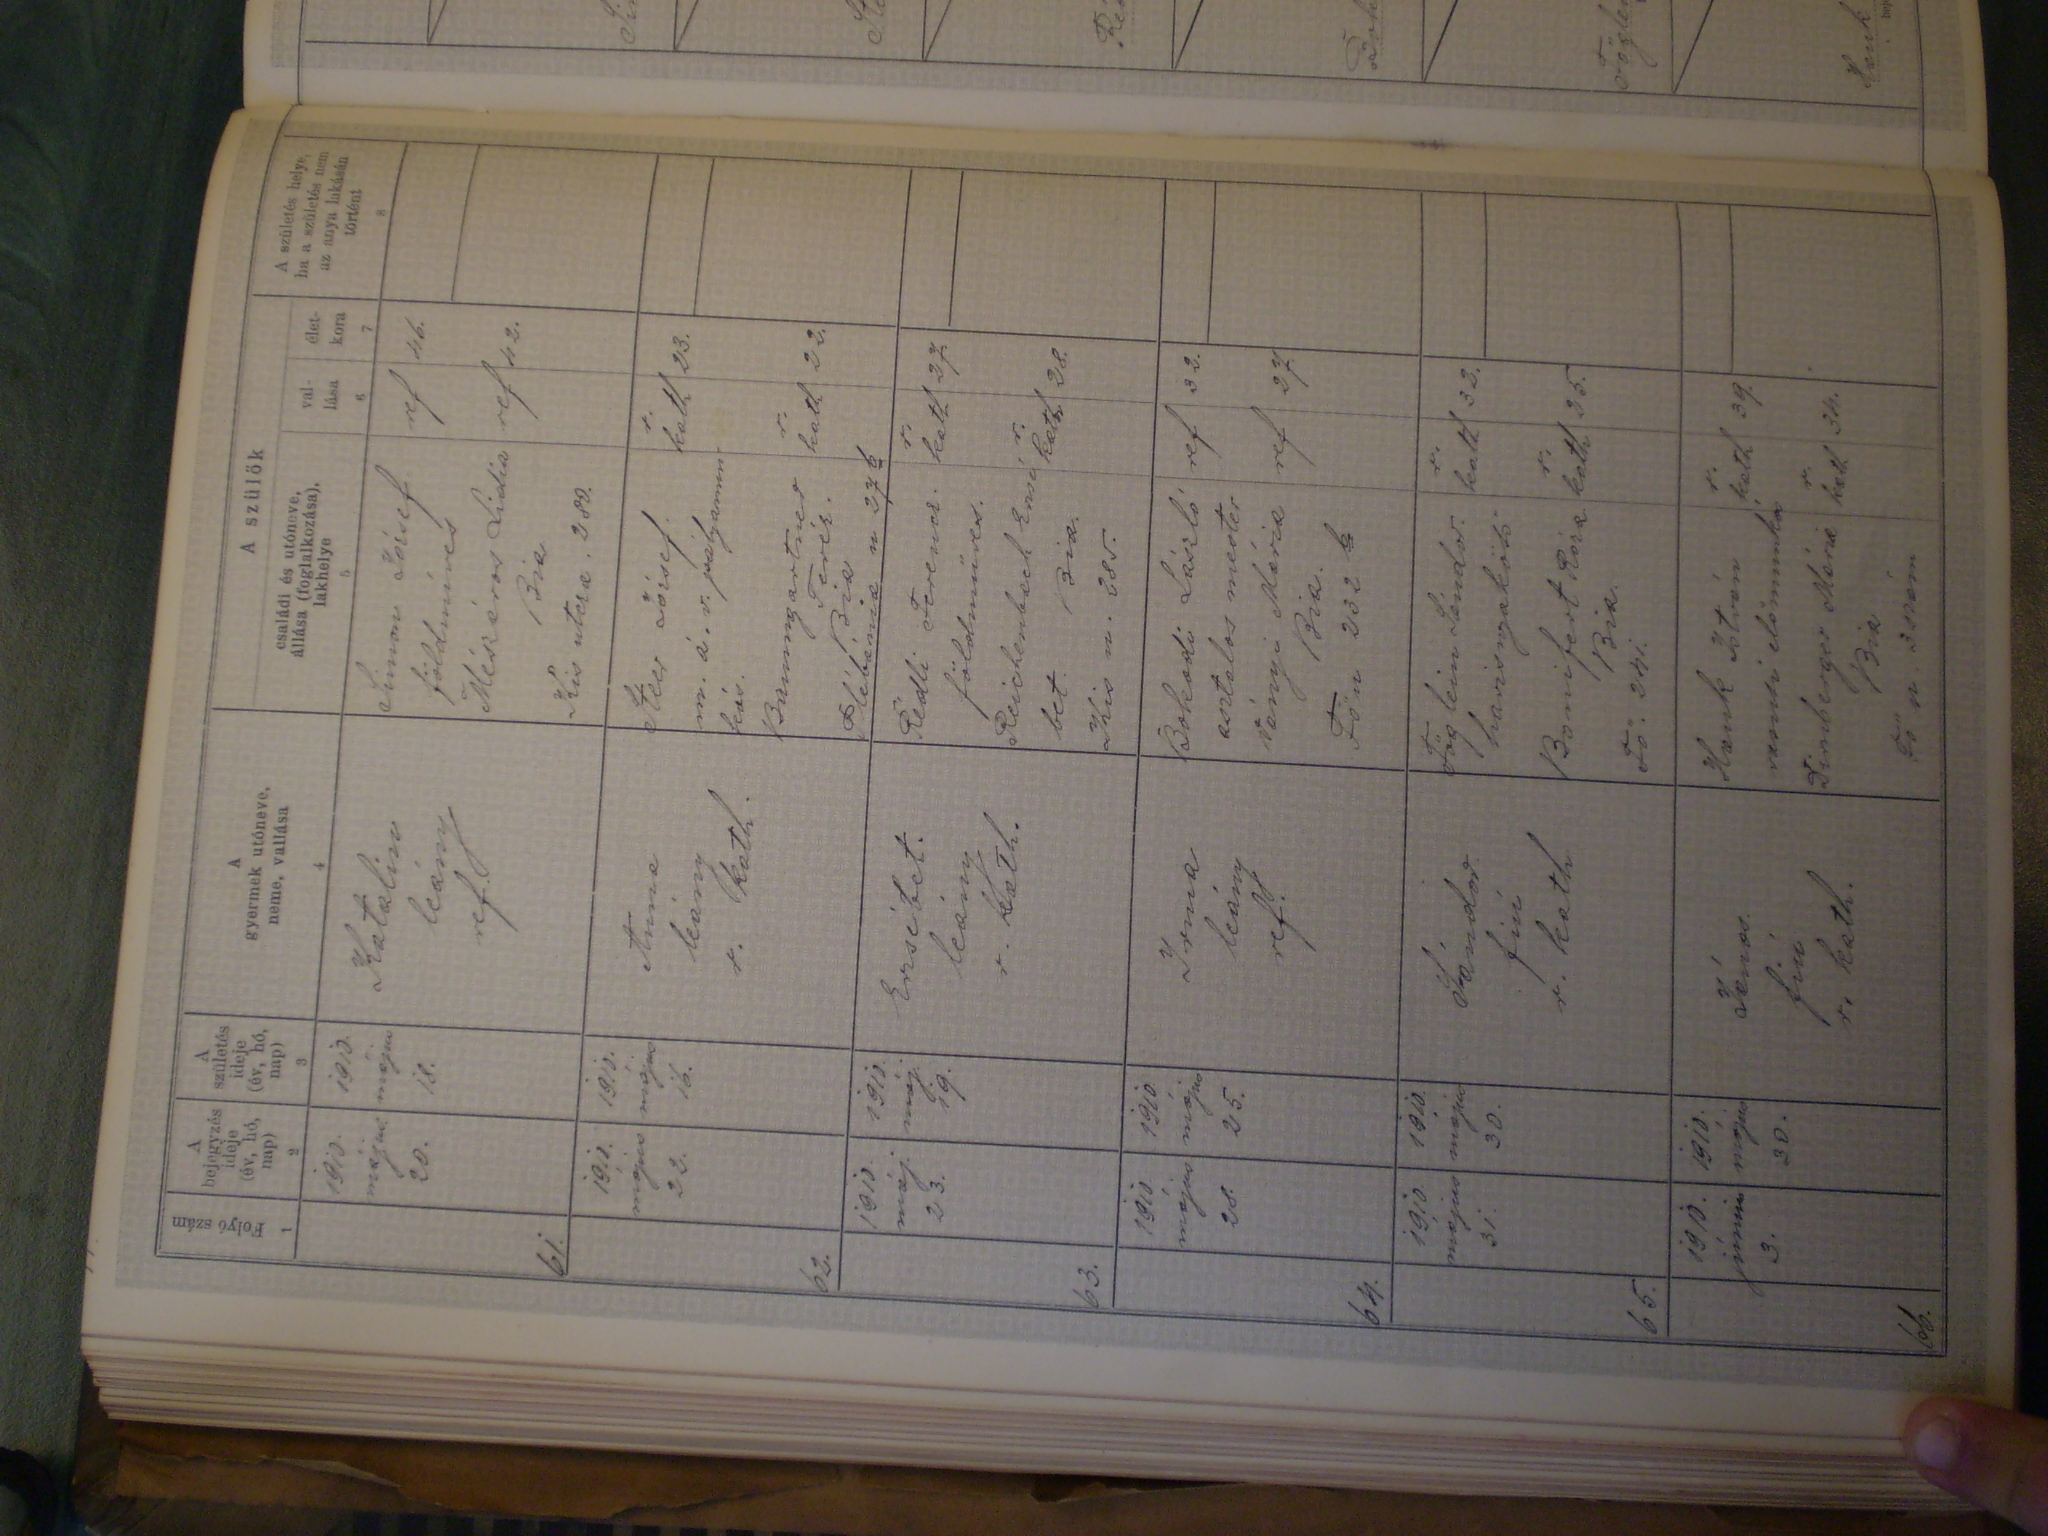 Folyó szám
1
A
bejegyzés
ideje
(év, hó,
nap)
2
A
születés
ideje
(év, hó,
nap)
3
A
gyermek utóneve,
neme, vallása
4
A szülők
családi és utóneve,
állása (foglalkozása),
lakhelye
5
val-
lása
6
élet-
kora
7
A születés helye,
ha a születés nem
az anya lakásán
történt
8
61.
1910.
május
20.
1910.
május
18.
Katalin
leány
ref.
Simon József
földmíves
Mészáros Lidia
Bia
Kis utcza. 280.
ref 46.
ref 42.
62.
1910.
május
22.
1910.
május
16.
Anna
leány
r. kath.
Steer József
m. á. v. pályamun-
kás.
Baumgartner
Teréz.
Bia
Plébánia u 27
r.
kath 23.
r.
kath 22.
63.
1910.
máj.
23.
1910.
máj.
19.
Erzsébet.
leány
r. kath.
Rédli Ferencz.
földmüves.
Reichenbach Erzsé
bet. Bia.
Kis u. 285.
r.
kath 27
r.
kath 28.
64.
1910.
május
28.
1910.
május
25.
Irma
leány
ref.
Bokodi László
asztalos mester
Ványi Mária
Bia.
Fö u 232
ref 32.
ref 27
65.
1910.
május
31.
1910.
május
30.
Sándor
fiú
r. kath
Föglein Sándor.
harisnyakötö
Bonifert Róza
Bia.
Fö. 241.
r.
kath 32.
r.
kath 25.
66.
1910.
június
3.
1910.
május
30.
János.
fiú
r. kath.
Hank István
vasuti elömunkás
Timberger Mária
Bia
Fö u.
r.
kath 39.
r.
kath 34.